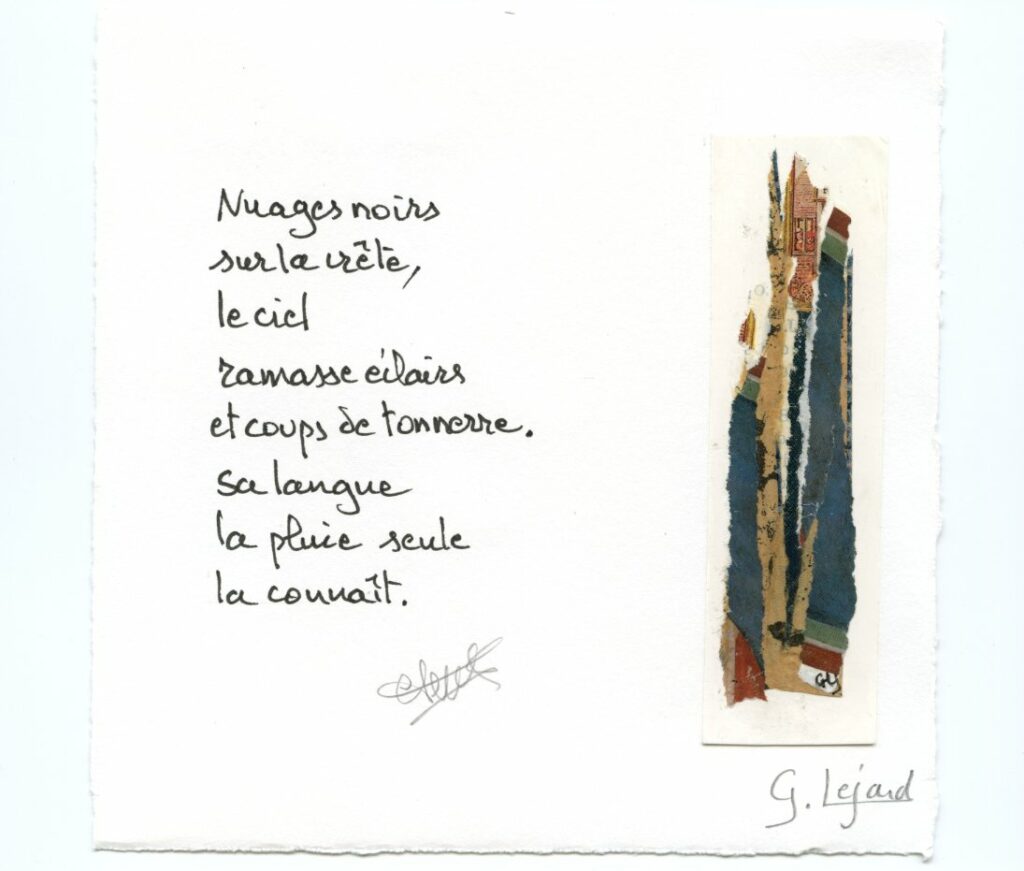 Nuages noirs
sur la crête,
le ciel
ramasse éclairs
et coups de tonnerre.
sa langue
la pluie seule
la connaît.
GL
G. Lejard